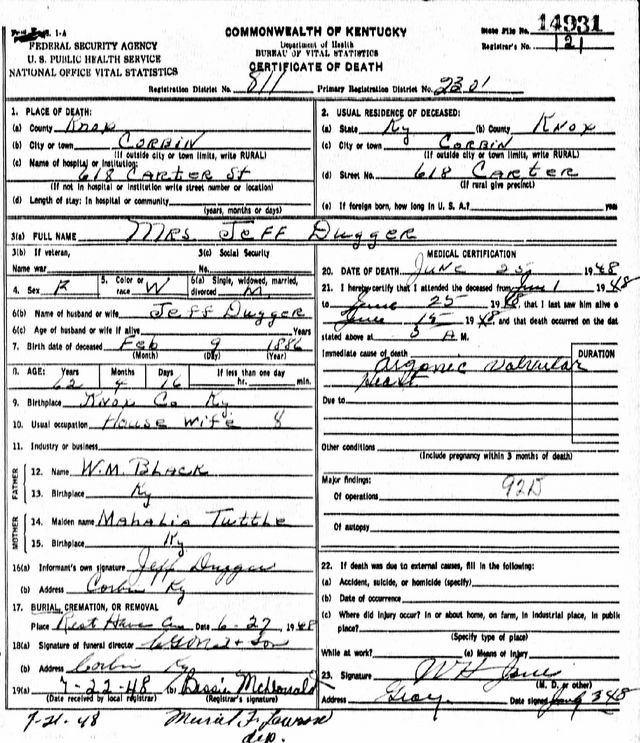 1-A
FEDERAL SECURITY AGENCY
U. S. PUBLIC HEALTH SERVICE
NATIONAL OFFICE VITAL STATISTICS
COMMONWEALTH OF KENTUCKY
Department of Health
BUREAU OF VITAL STATISTICS
CERTIFICATE OF DEATH
State File No. 14931
Registrar's No. 121
Registration District No. 811 Primary Registration District No. 2301
1. PLACE OF DEATH:
(a) County Knox
(b) City or town CORBIN
(If outside city or town limits, write RURAL)
(c) Name of hospital or institution:
618 CARTER St
(If not in hospital or institution write street number or location)
(d) Length of stay: In hospital or community
(years, months or days)
2. USUAL RESIDENCE OF DECEASED:
(a) State Ky (b) County KNOX
(c) City or town CORBIN
(If outside city or town limits, write RURAL)
(d) Street No. 618 CARTER
(If rural give precinct)
(e) If foreign born, how long in U. S. A.? years
3(a) FULL NAME MRS. JEFF Dugger
3(b) If veteran, 3(c) Social Security
Name war No.
4. Sex F 5. Color or race W 6(a) Single, widowed, married, divorced M
6(b) Name of husband or wife Jeff Dugger
6(c) Age of husband or wife if alive Years
7. Birth date of deceased Feb 9 1886
(Month) (Day) (Year)
8. AGE: Years Months Days If less than one day
62 4 16 hr. min.
9. Birthplace Knox Co Ky
10. Usual occupation House Wife 8
11. Industry or business
FATHER
12. Name W.M. BLACK
13. Birthplace Ky
MOTHER
14. Maiden name MAHALIA TUTTLE
15. Birthplace Ky
16(a) Informant's own signature Jeff Dugger
(b) Address Corbin Ky
17. BURIAL, CREMATION, OR REMOVAL
Place Rest Haven Cem Date 6-27, 1948
18(a) Signature of funeral director & Son
(b) Address Corbin Ky
19(a) 7-22-48 (b) Bessie McDonald
(Date received by local registrar) (Registrar's signature)
7-21-48
MEDICAL CERTIFICATION
20. DATE OF DEATH June 25, 1948
21. I hereby certify that I attended the deceased from June 1 1948
to June 25 1948, that I last saw him alive o
June 15 1948, and that death occurred on the dat
stated above at 3 A M.
Immediate cause of death DURATION
organic valvular
heart
Due to
Other conditions
(Include pregnancy within 3 months of death)
Major findings: 92D
Of operations
Of autopsy
22. If death was due to external causes, fill in the following:
(a) Accident, suicide, or homicide (specify)
(b) Date of occurrence
(c) Where did injury occur? In or about home, on farm, in industrial place, in public
place?
(Specify type of place)
While at work? (e) Means of injury
23. Signature W H Jones
(M. D. or other)
Address Gray Date signed July 3 48
Muriel F. Lawson
dep.